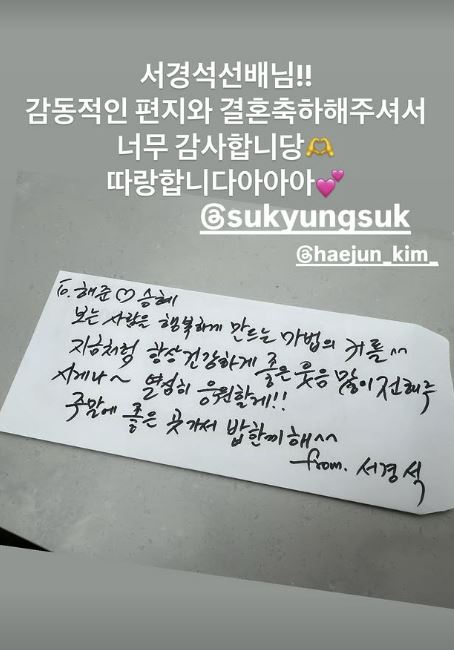 서경석선배님!!
감동적인 편지와 결혼축하해주셔서
너무 감사합니당🫶
따랑합니다아아아💕
@sukyungsuk
@haejun_kim_
To. 해준♡승혜
보는 사람을 행복하게 만드는 마법의 커플^^
지금처럼 항상 건강하게 좋은 웃음 많이 전해주
시게나~ 열심히 응원할게!!
주말에 좋은 곳가서 밥한끼해^^
from. 서경석